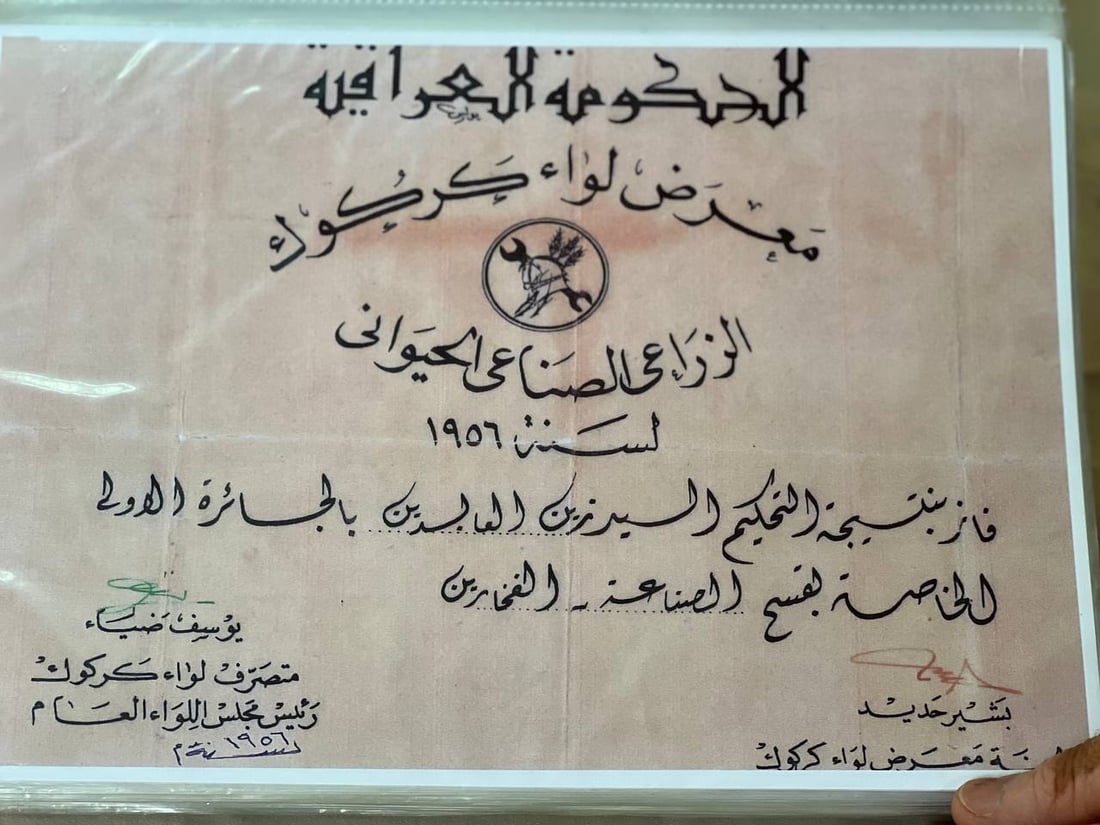 الحكومة العراقية
مَعْرَض لِوَاء كَركُوك
الزرَاعى الصنَاعى الحيَوَانى
لسنة ١٩٥٦
فاز بنتيجة التحكيم السيد زين العابدين بالجائزة الاولى
الخاصة بقسم الصناعة - الفخارين
يوسف ضيَاء
متصرّف لوَاء كركوك
رئيس مجلس اللوَاء العَام
لسنة ١٩٥٦م
بَشير حَديد
مَعرَض لوَاء كركوك